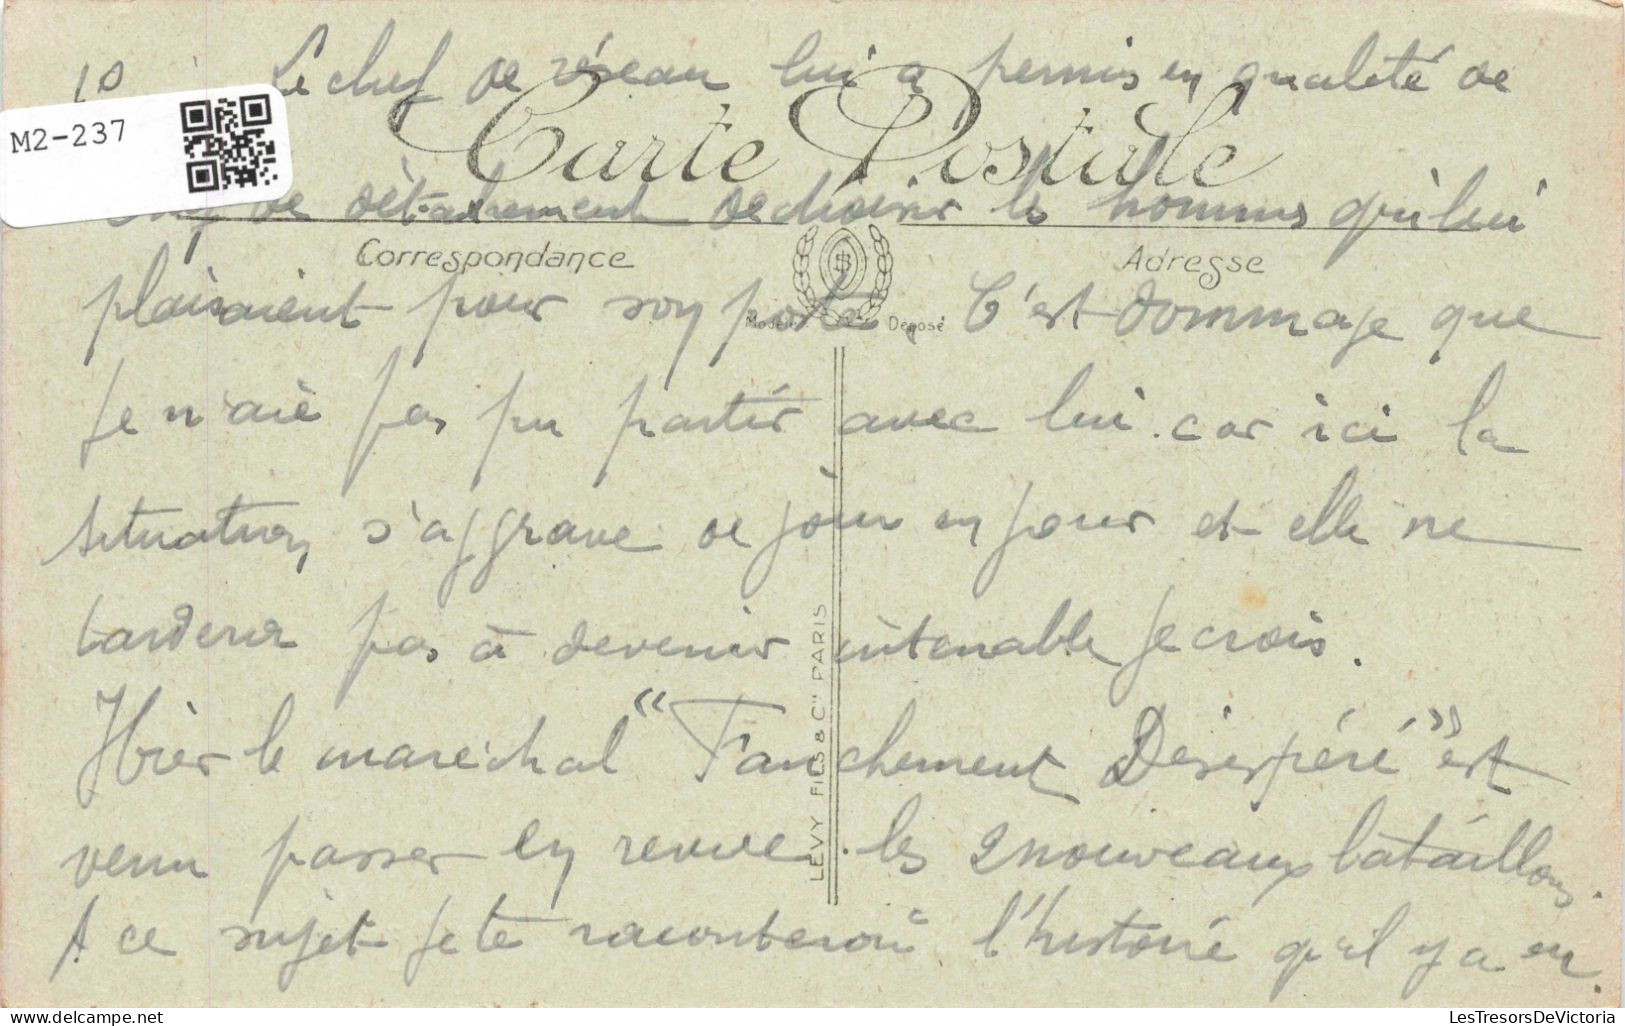 1º Le chef de réseau lui a permis en qualité de
M2-237
Carte Postale
chef de détachement de choisir les hommes qui lui
Correspondance
Adresse
plaisaient pour son poste. C'est dommage que
Modèle Déposé
je n'aie pas pu partir avec lui. car ici la
situation s'aggrave de jour en jour et elle ne
tardera pas à devenir intenable je crois.
Hier le maréchal "Fanchement Désespéré" est
venu passer en revue les 2 nouveaux bataillons.
A ce sujet je te raconterai l'histoire qu'il y a eu.
LÉVY FILS & Cie PARIS
LesTresorsDeVictoria
www.delcampe.net